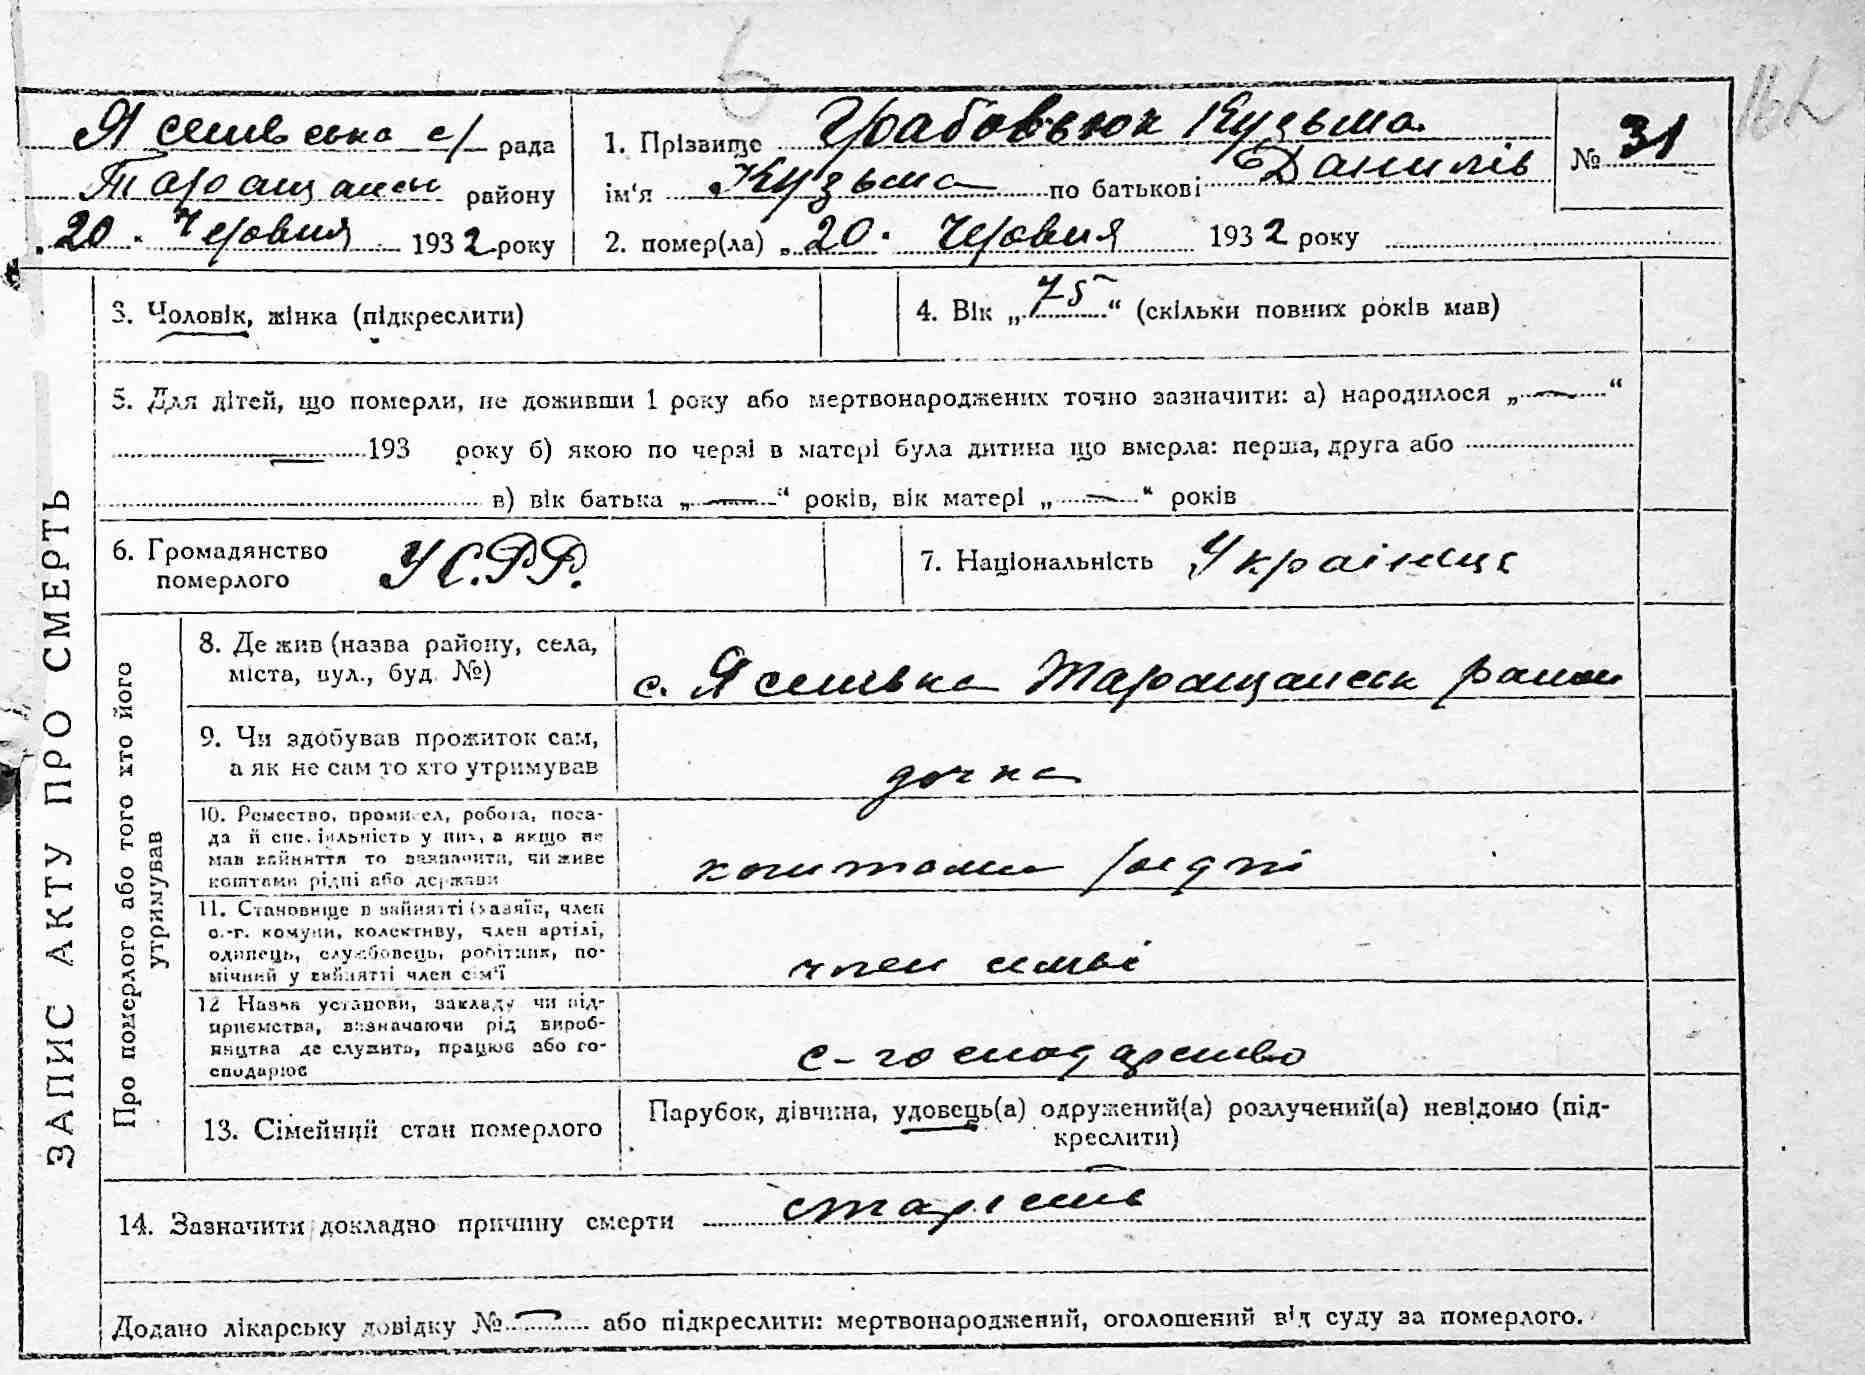 Ясинівська с/ рада
Таращанськ району
„20. Червня 1932 року
1. Прізвище Грабовьюк Кузьма
ім'я Кузьма по батькові Данилів
2. помер(ла) „20. Червня 1932 року
№ 31
3. Чоловік, жінка (підкреслити)
4. Вік „75“ (скільки повних років мав)
5. Для дітей, що померли, не доживши 1 року або мертвонароджених точно зазначити: а) народилося „—“
193 року б) якою по черзі в матері була дитина що вмерла: перша, друга або
в) вік батька „—“ років, вік матері „—“ років
6. Громадянство
померлого
УСРР.
7. Національність Украінец
ЗАПИС АКТУ ПРО СМЕРТЬ
Про померлого або того хто його
утримував
8. Де жив (назва району, села,
міста, вул., буд. №)
с. Ясинівка Таращанськ район
9. Чи здобував прожиток сам,
а як не сам то хто утримував
дочка
10. Ремество, промисел, робота, поса-
да й спеціальність у них, а якщо не
мав зайняття то зазначити, чи живе
коштами рідні або держави
коштами рідні
11. Становище в зайнятті (хазяїн, член
с.-г. комуни, колективу, член артілі,
одинець, службовець, робітник, по-
мічний у зайнятті член сім'ї
член сімьі
12 Назва установи, закладу чи під-
приємства, визначаючи рід вироб-
ництва де служить, працює або го-
сподарює
с-господарство
13. Сімейний стан померлого
Парубок, дівчина, удовець(а) одружений(а) розлучений(а) невідомо (під-
креслити)
14. Зазначити докладно причину смерти старість
Додано лікарську довідку № — або підкреслити: мертвонароджений, оголошений від суду за померлого.